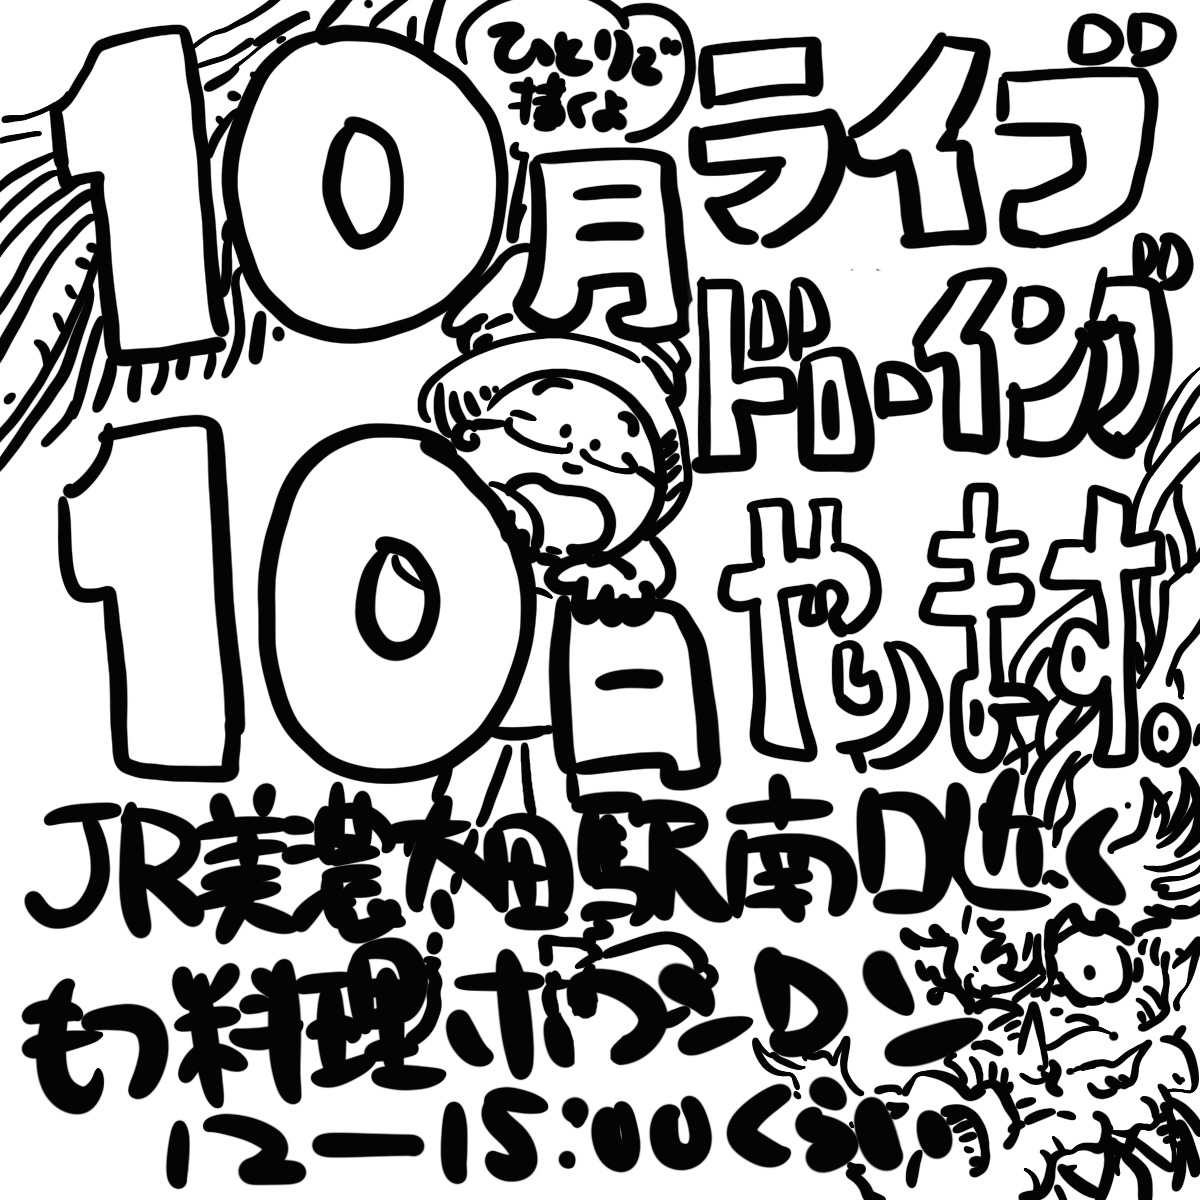 ひとりで
描くよ
10月
10日
ライブ
ドローイング
やります。
JR美濃太田駅南口近く
もつ料理
12ー15:00くらい